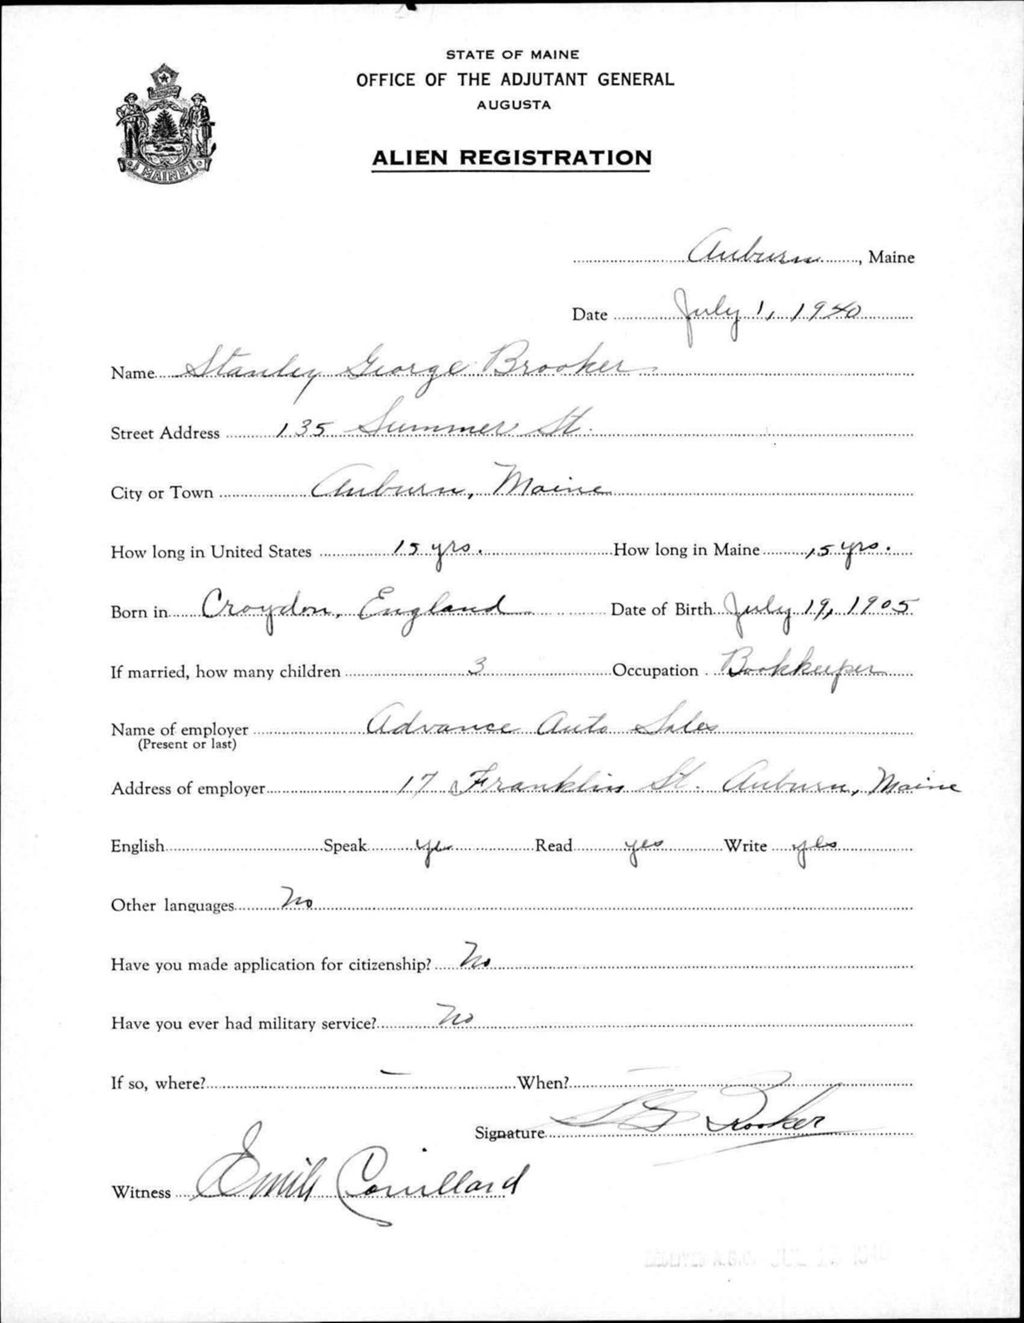 STATE OF MAINE
OFFICE OF THE ADJUTANT GENERAL
AUGUSTA
MAINE
ALIEN REGISTRATION
Auburn, Maine
Date July 1, 1940
Name Stanley George Brooker
Street Address 135 Summer St.
City or Town Auburn, Maine
How long in United States 15 yrs. How long in Maine 15 yrs.
Born in Croydon, England Date of Birth July 19, 1905
If married, how many children 3 Occupation Bookkeeper
Name of employer Advance Auto Sales
(Present or last)
Address of employer 17 Franklin St. Auburn, Maine
English Speak yes Read yes Write yes
Other languages No
Have you made application for citizenship? No
Have you ever had military service? No
If so, where? — When?
Signature S G Brooker
Witness Emile Couillard